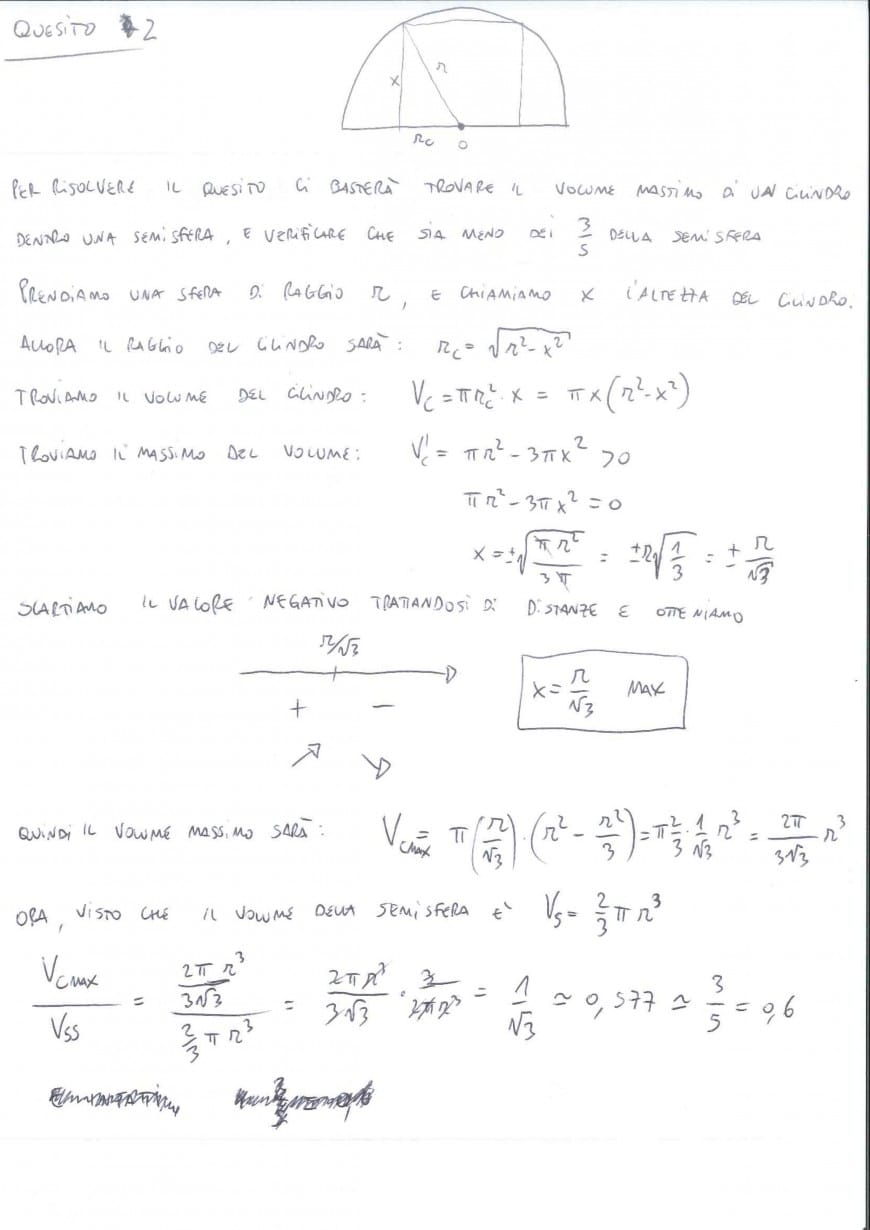 QUESITO 2
r
x
rc
O
PER RISOLVERE IL QUESITO CI BASTERÀ TROVARE IL VOLUME MASSIMO DI UN CILINDRO
DENTRO UNA SEMISFERA, E VERIFICARE CHE SIA MENO DEI 3/5 DELLA SEMISFERA
PRENDIAMO UNA SFERA DI RAGGIO r, E CHIAMIAMO x L'ALTEZZA DEL CILINDRO.
ALLORA IL RAGGIO DEL CILINDRO SARÀ: rc = √(r² - x²)
TROVIAMO IL VOLUME DEL CILINDRO: Vc = πrc² · x = πx(r² - x²)
TROVIAMO IL MASSIMO DEL VOLUME: V'c = πr² - 3πx² > 0
πr² - 3πx² = 0
x = ±√(πr²/3π) = ±r√(1/3) = ± r/√3
SCARTIAMO IL VALORE NEGATIVO TRATTANDOSI DI DISTANZE E OTTENIAMO
r/√3
x = r/√3 MAX
+ −
QUINDI IL VOLUME MASSIMO SARÀ: VCMAX = π(r/√3)·(r² - r²/3) = π 2/3 · 1/√3 r³ = 2π/3√3 r³
ORA, VISTO CHE IL VOLUME DELLA SEMISFERA È VS = 2/3 π r³
VCMAX/VSS = (2π r³/3√3)/(2/3 π r³) = 2πr³/3√3 · 3/2πr³ = 1/√3 ≃ 0,577 ≃ 3/5 = 0,6